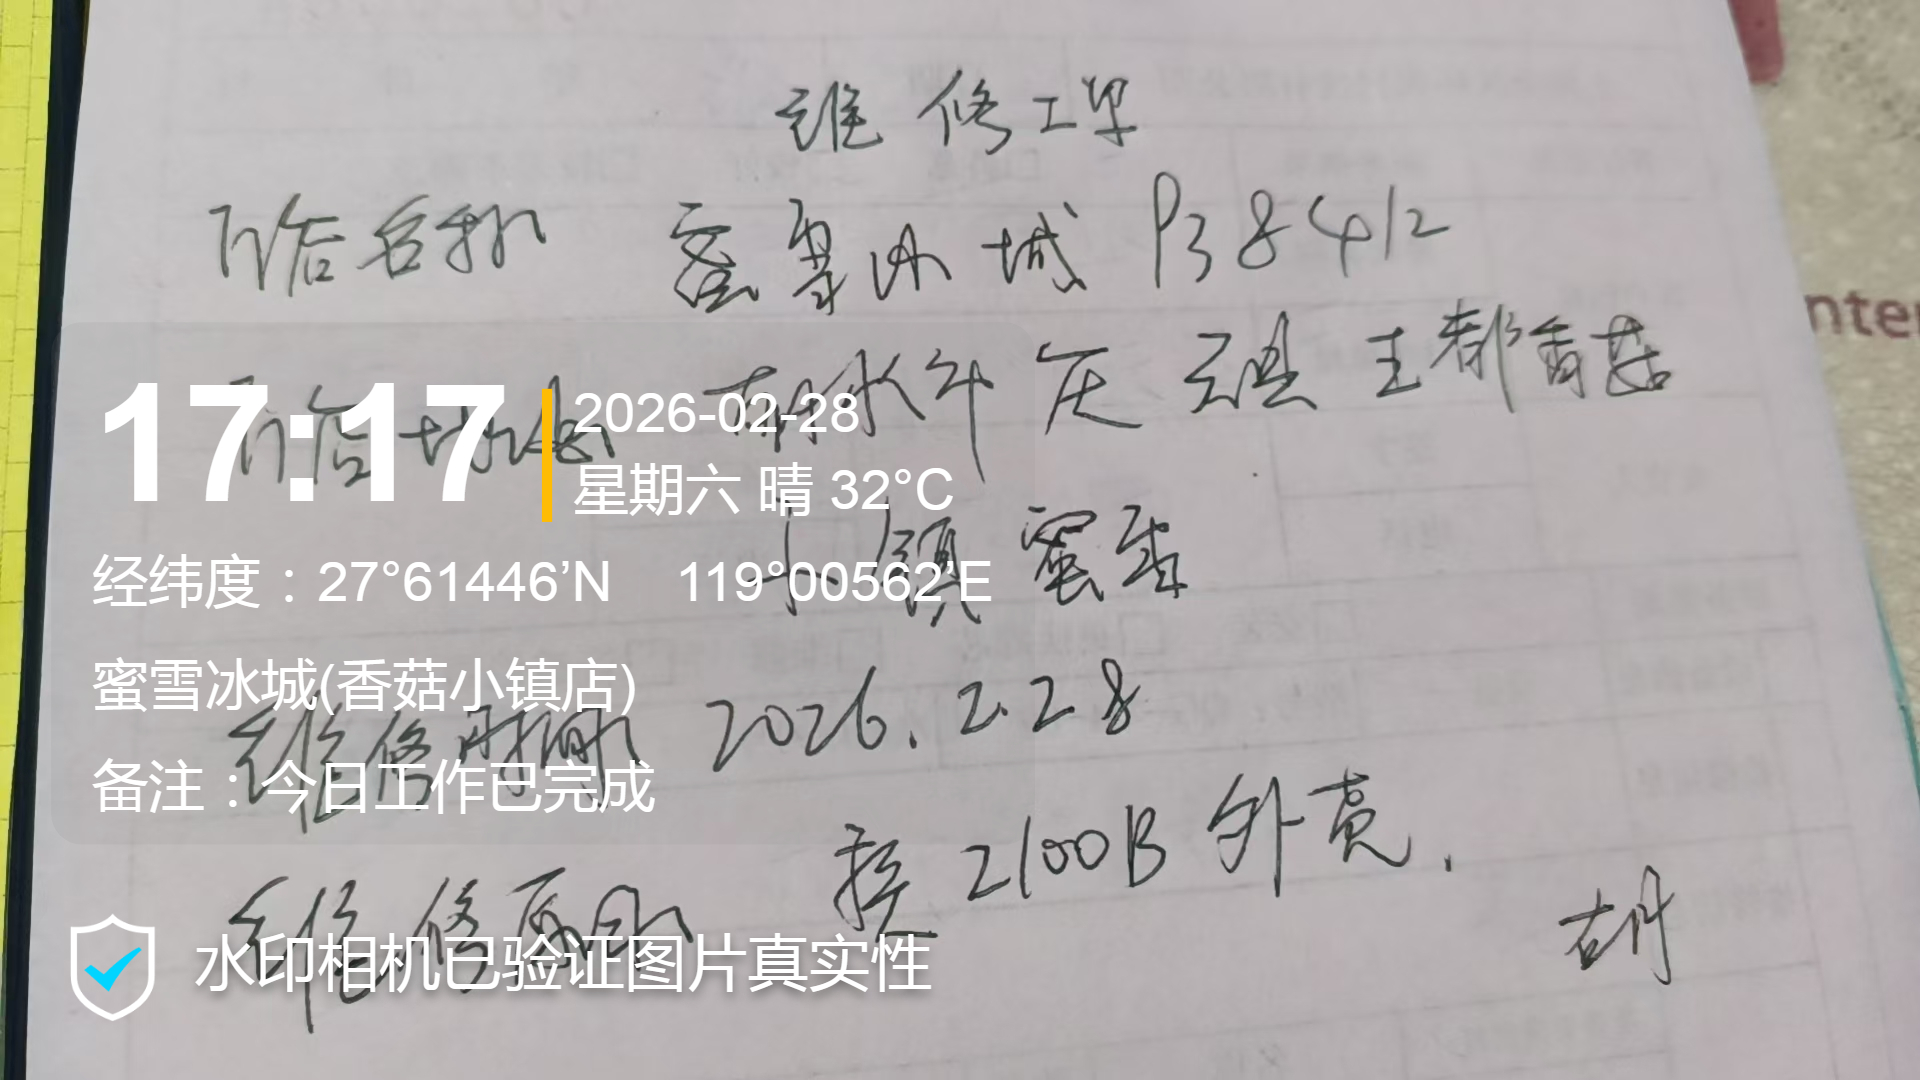 维修工单
门店名称 蜜雪冰城 P38412
门店地址 丽水 庆元县 元都香菇
小镇蜜雪
维修时间 2026.2.28
维修 换2100B外壳.
胡
17:17
2026-02-28
星期六 晴 32°C
经纬度：27°61446’N 119°00562’E
蜜雪冰城(香菇小镇店)
备注：今日工作已完成
水印相机已验证图片真实性
nter